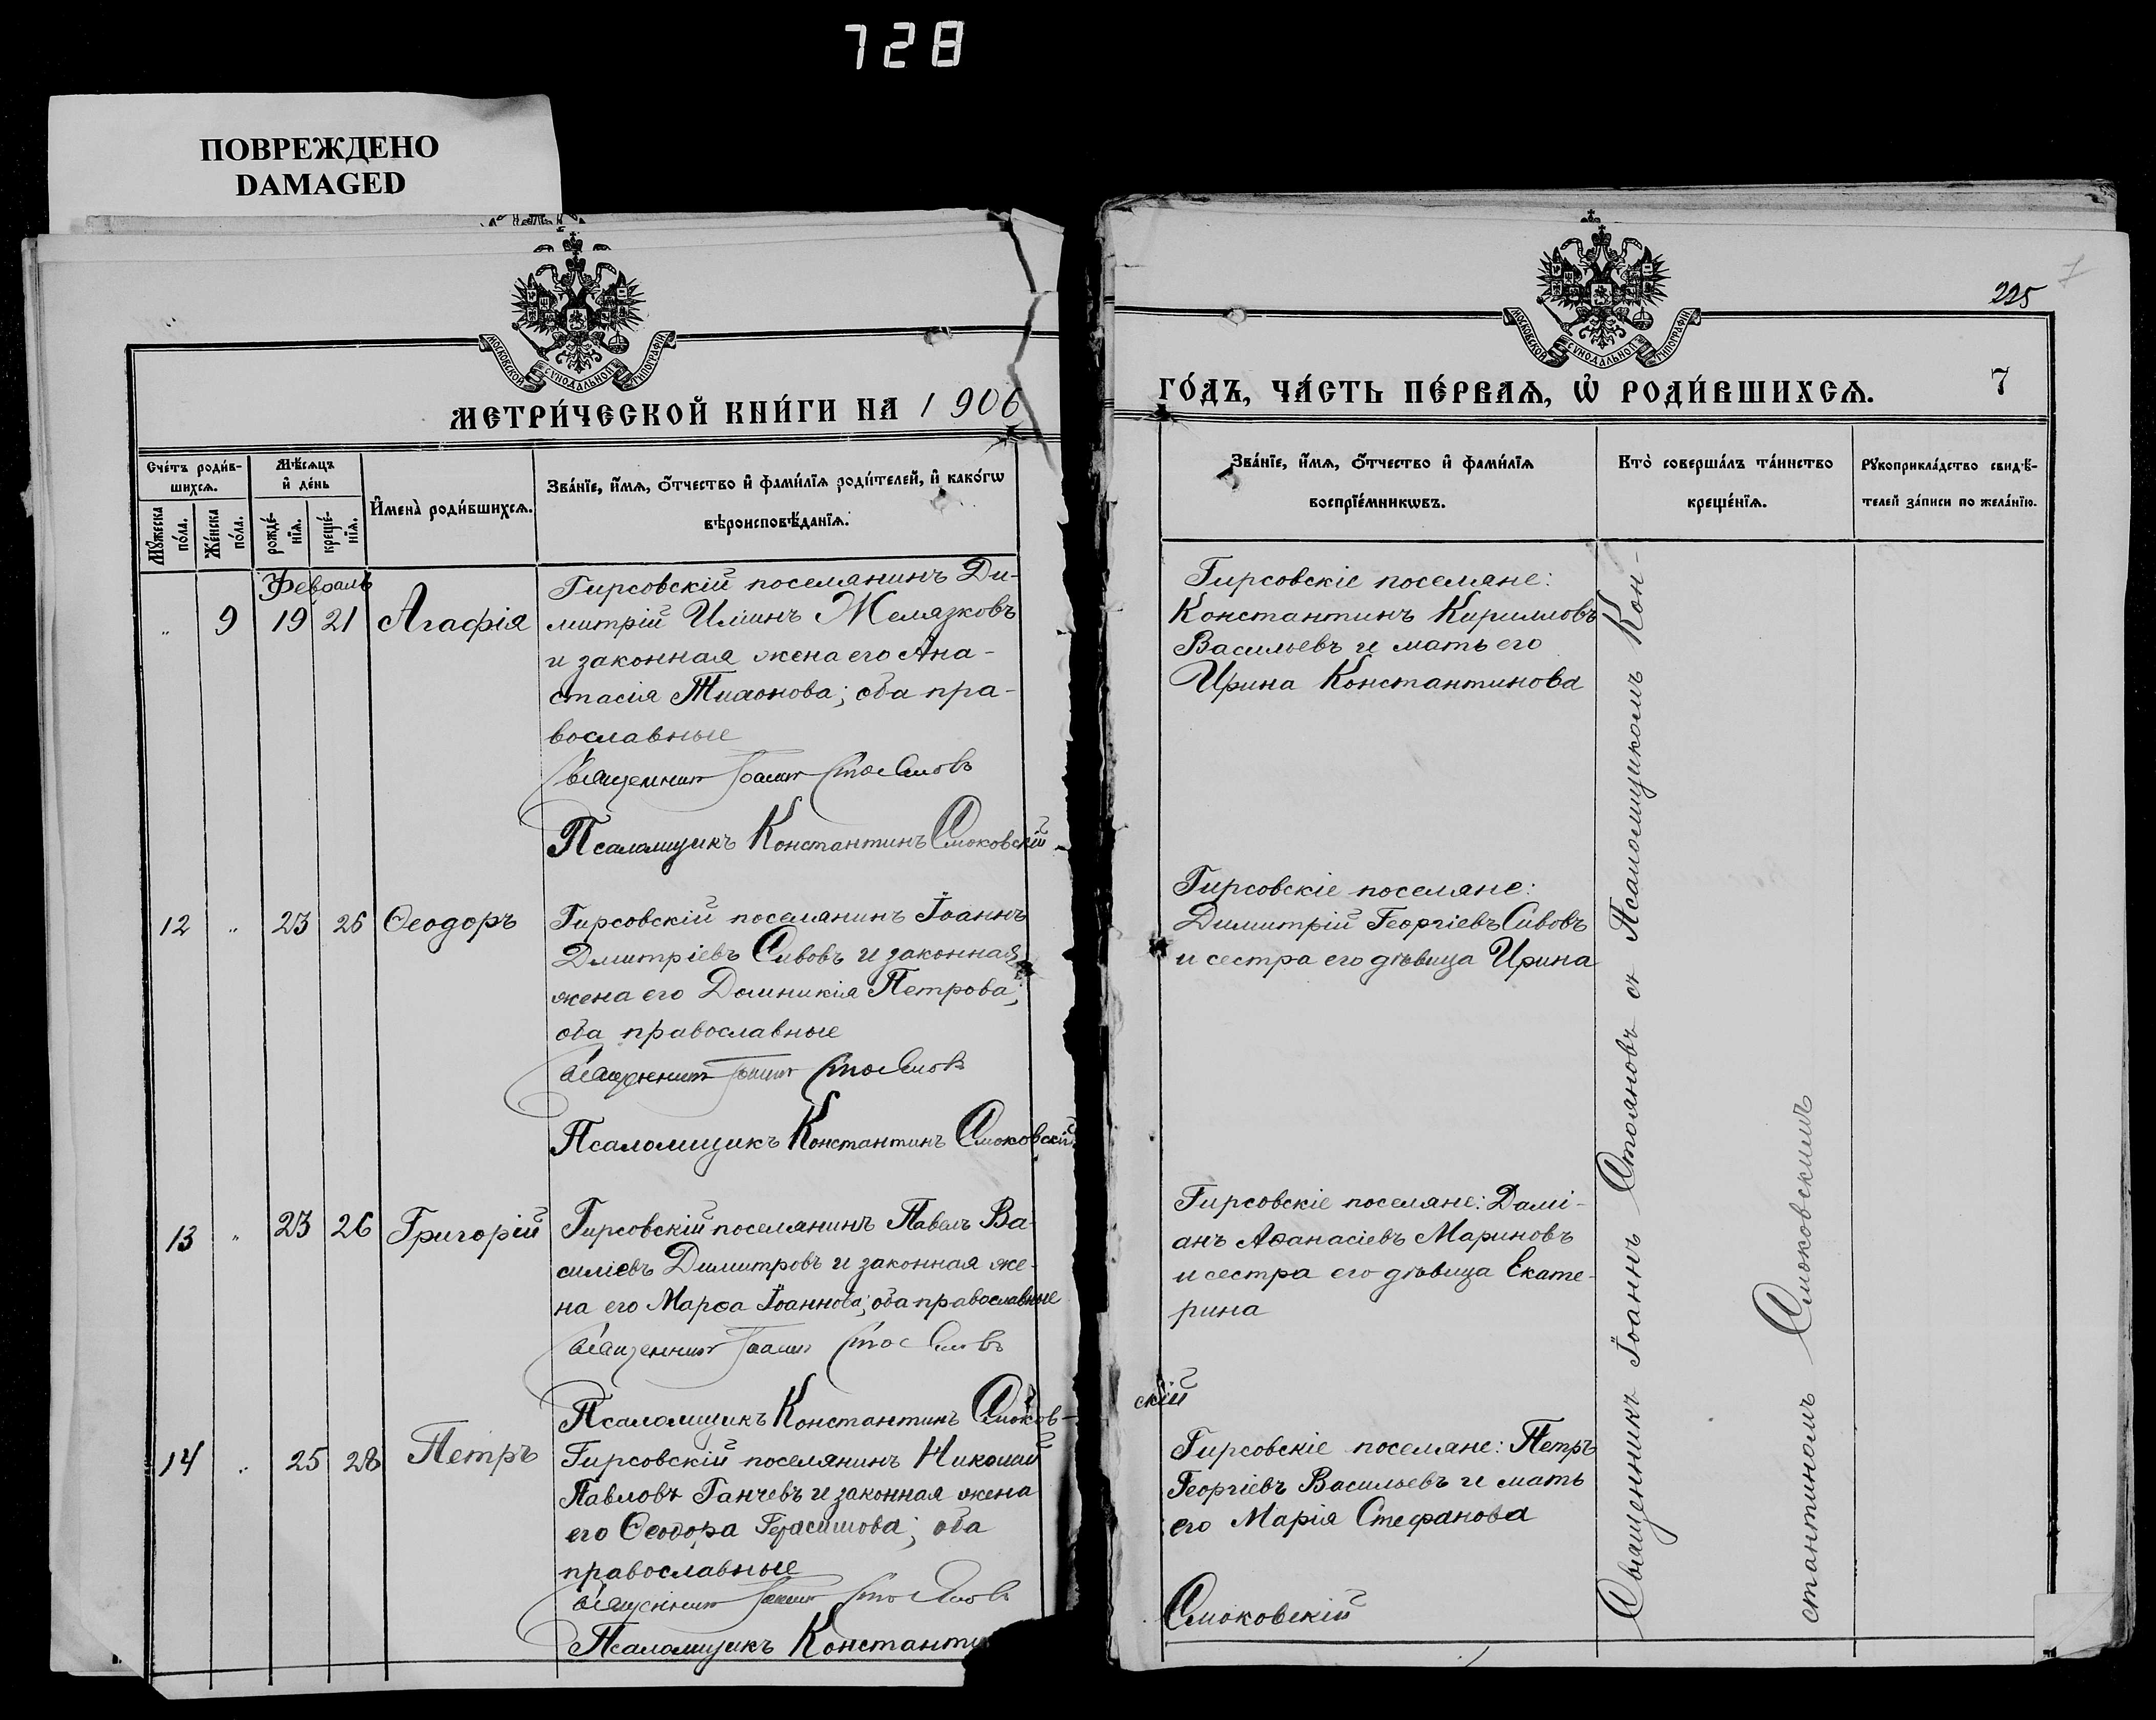 728
ПОВРЕЖДЕНО
DAMAGED
МОСКОВСКОЙ СѴНОДАЛЬНОЙ ТИПОГРАФІИ
МЕТРИ́ЧЕСКОЙ КНИ́ГИ НА 1906
Сче́тъ роди́в-
шихсѧ.
Мꙋ́жеска по́ла.
Же́нска по́ла.
Мѣ́сѧцъ
и҆ де́нь
рожде́-
нїѧ.
креще́-
нїѧ.
И҆мена̀ роди́вшихсѧ.
Зва́нїе, и҆́мѧ, ѻ҆́тчество и҆ фами́лїѧ роди́телей, и҆ како́гѡ
вѣроисповѣ́данїѧ.
Февраль
" 9 19 21 Агафія
Гирсовскій поселянинъ Ди-
митрій Иліинъ Желязковъ
и законная жена его Ана-
стасія Тихонова; оба пра-
вославные
Священникъ Іоаннъ Стояновъ
Псаломщикъ Константинъ Смоковскій
12 " 23 26 Ѳеодоръ
Гирсовскій поселянинъ Іоаннъ
Дмитріевъ Сивовъ и законная
жена его Домникія Петрова;
оба православные
Священникъ Іоаннъ Стояновъ
Псаломщикъ Константинъ Смоковскій
13 " 23 26 Григорій
Гирсовскій поселянинъ Павелъ Ва-
силіевъ Димитровъ и законная же-
на его Марѳа Іоаннова; оба православные
Священникъ Іоаннъ Стояновъ
Псаломщикъ Константинъ Смоков-
14 " 25 28 Петръ
Гирсовскій поселянинъ Николай
Павловъ Ганчевъ и законная жена
его Ѳеодора Герасимова; оба
православные
Священникъ Іоаннъ Стояновъ
Псаломщикъ Константи
225
МОСКОВСКОЙ СѴНОДАЛЬНОЙ ТИПОГРАФІИ
ГО́ДЪ, ЧА́СТЬ ПЕ́РВАѦ, Ѡ҆ РОДИ́ВШИХСѦ.
7
Зва́нїе, и҆́мѧ, ѻ҆́тчество и҆ фами́лїѧ
воспрїе́мникѡвъ.
Кто̀ соверша́лъ та́инство
креще́нїѧ.
Рꙋкоприкла́дство свидѣ́-
телей за́писи по жела́нїю.
Гирсовскіе поселяне:
Константинъ Кирилловъ
Васильевъ и мать его
Ирина Константинова
Гирсовскіе поселяне:
Димитрій Георгіевъ Сивовъ
и сестра его дѣвица Ирина
Гирсовскіе поселяне: Дамі-
анъ Аѳанасіевъ Мариновъ
и сестра его дѣвица Екате-
рина
скій
Гирсовскіе поселяне: Петръ
Георгіевъ Васильевъ и мать
его Марія Стефанова
Смоковскій
Священникъ Іоаннъ Стояновъ съ Псаломщикомъ Кон-
стантиномъ Смоковскимъ